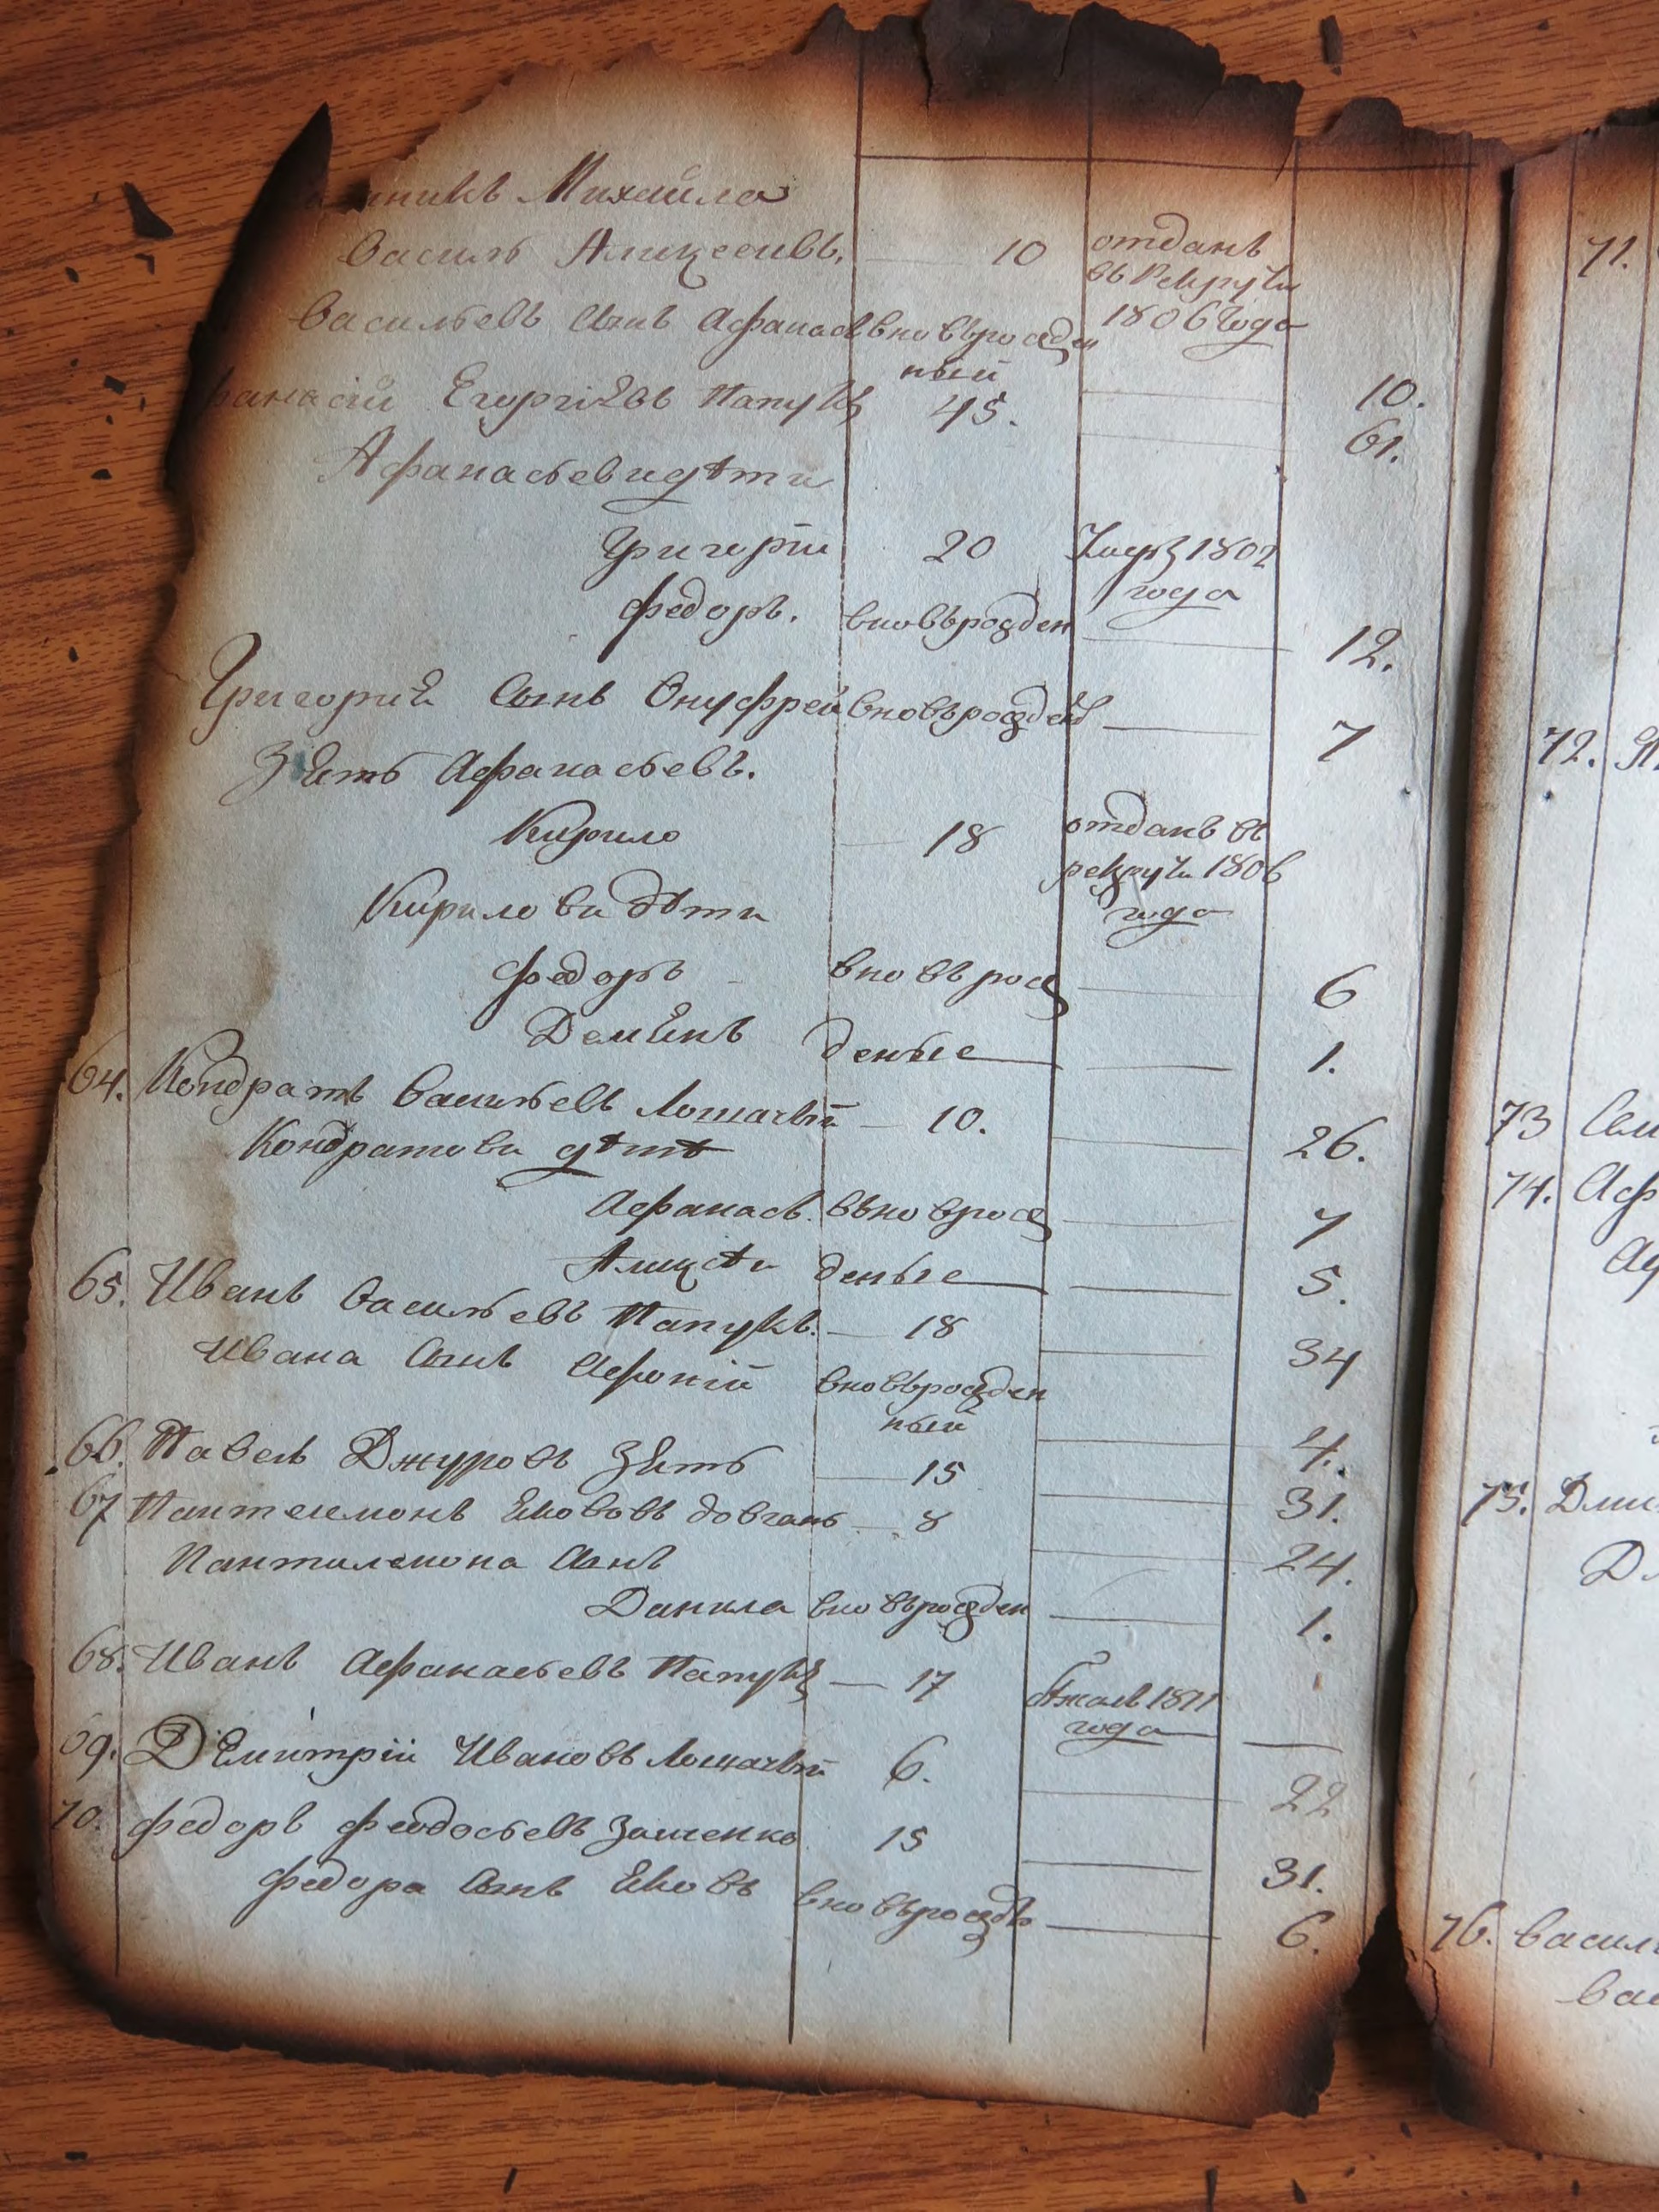 Михайла
Василь Аликсеивъ. 10 отданъ
въ Рекруты
Васильевъ сынъ Афанас вновърожден 1806 года
ный 10.
Егоргіевъ Папукъ 45. 61.
Афанасьеви дѣти
Григорій 20 Умеръ 1802
года
Федоръ. вновърожден 12.
Григорія сынъ Онуфрей вновърожден 7
Зять Афанасьевъ.
Кирило 18 отданъ въ
рекруты 1806
года
Кирилови дѣти
Федоръ вновърож 6
Демянъ деные 1.
64. Кондратъ Васильевъ Лошачій 10. 26.
Кондратови дѣтѣ
Афанась. вьновърож 7
Аликсѣи деные 5.
65. Иванъ Васильевъ Папукъ. 18 34
Ивана сынъ Афоній вновърожден
ный 4.
66. Павелъ Джуровъ Зять 15 31.
67 Пантелемонъ Яковъвъ Довгань 8 24.
Пантилемона сынъ
Данила вновърожден 1.
68. Иванъ Афанасьевъ Папукъ 17 бѣжалъ 1811
года
69. Дямитрій Ивановъ Лошачій 6. 22
70. Федоръ Феодосьевъ Заиченко 15 31.
Федора сынъ Яковъ вновърожде 6.
71.
72.
73
74. Аф
75. Дми
76. Васил